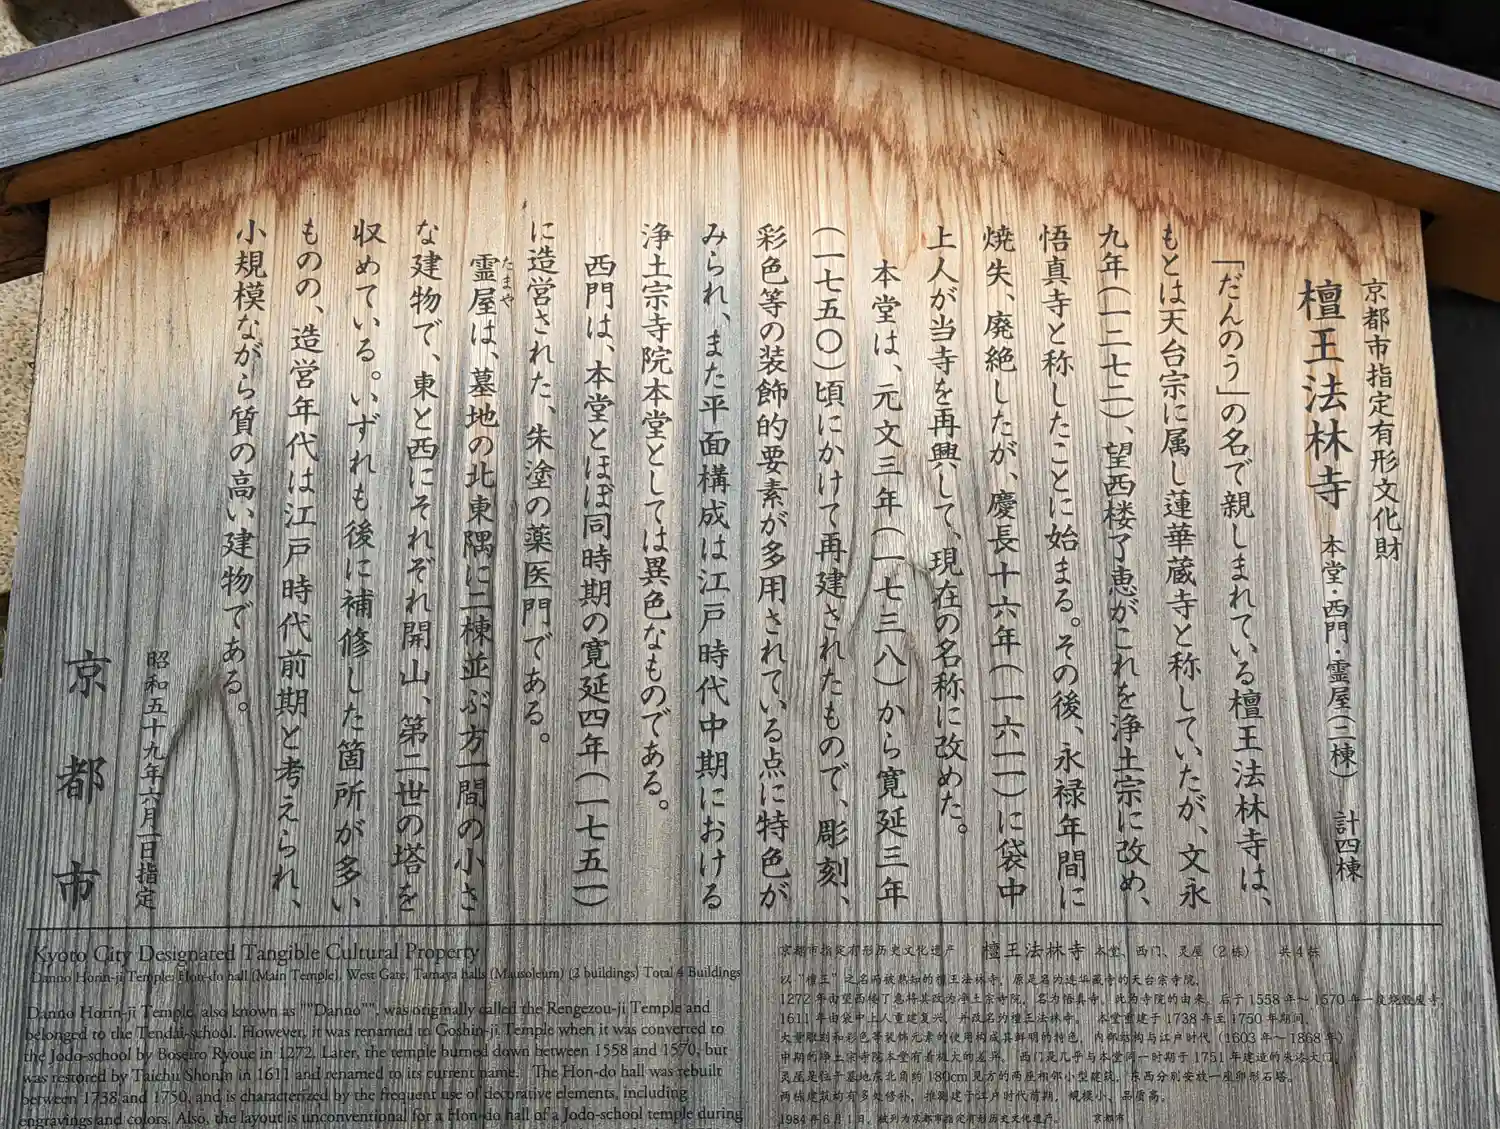 京都市指定有形文化財
檀王法林寺 本堂・西門・霊屋(二棟) 計四棟
「だんのう」の名で親しまれている檀王法林寺は、
もとは天台宗に属し蓮華蔵寺と称していたが、文永
九年(一二七二)、望西楼了恵がこれを浄土宗に改め、
悟真寺と称したことに始まる。その後、永禄年間に
焼失、廃絶したが、慶長十六年(一六一一)に袋中
上人が当寺を再興して、現在の名称に改めた。
本堂は、元文三年(一七三八)から寛延三年
(一七五〇)頃にかけて再建されたもので、彫刻、
彩色等の装飾的要素が多用されている点に特色が
みられ、また平面構成は江戸時代中期における
浄土宗寺院本堂としては異色なものである。
西門は、本堂とほぼ同時期の寛延四年(一七五一)
に造営された、朱塗の薬医門である。
霊屋は、墓地の北東隅に二棟並ぶ方一間の小さ
たまや
な建物で、東と西にそれぞれ開山、第二世の塔を
収めている。いずれも後に補修した箇所が多い
ものの、造営年代は江戸時代前期と考えられ、
小規模ながら質の高い建物である。
昭和五十九年六月一日指定
京都市
Kyoto City Designated Tangible Cultural Property
Danno Horin-ji Temple: Hon-do hall (Main Temple), West Gate, Tamaya halls (Mausoleum) (2 buildings) Total 4 Buildings
Danno Horin-ji Temple, also known as ""Danno"", was originally called the Rengezou-ji Temple and
belonged to the Tendai-school. However, it was renamed to Goshin-ji Temple when it was converted to
the Jodo-school by Boseiro Ryoue in 1272. Later, the temple burned down between 1558 and 1570, but
was restored by Taichu Shonin in 1611 and renamed to its current name. The Hon-do hall was rebuilt
between 1738 and 1750, and is characterized by the frequent use of decorative elements, including
engravings and colors. Also, the layout is unconventional for a Hon-do hall of a Jodo-school temple during
京都市指定有形历史文化遗产 檀王法林寺 本堂、西门、灵屋(2栋) 共4栋
以“檀王”之名而被熟知的檀王法林寺，原是名为莲华藏寺的天台宗寺院，
1272年由望西楼了惠将其改为净土宗寺院，名为悟真寺，此为寺院的由来。后于1558年～1570年一度烧毁废寺，
1611年由袋中上人重建复兴，并改名为檀王法林寺。 本堂重建于1738年至1750年期间，
大量雕刻和彩色等装饰元素的使用构成其鲜明的特色，内部结构与江户时代(1603年～1868年)
中期的净土宗寺院本堂有着极大的差异。 西门是几乎与本堂同一时期于1751年建造的朱漆大门。
灵屋是位于墓地东北角约180cm见方的两座相邻小型建筑，东西分别安放一座卵形石塔。
两栋建筑均有多处修补，推测建于江户时代前期，规模小、品质高。
1984年6月1日，被列为京都市指定有形历史文化遗产。 京都市